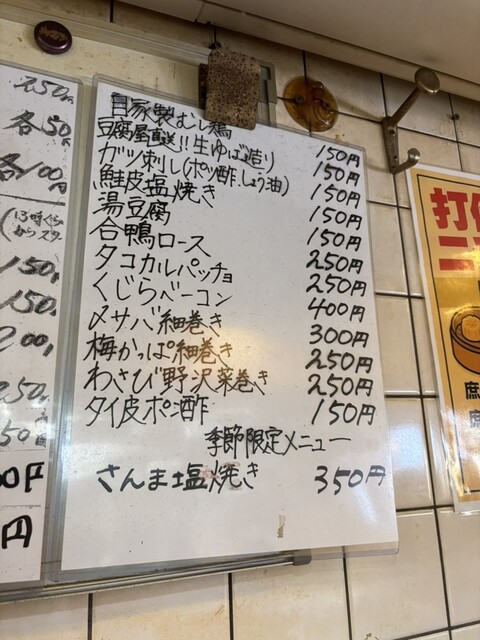 250円
各50
各100円
(13時ぐら
からスタ
150
150
200
250
50
00円
円
自家製むし鶏 150円
豆腐屋直送!!生ゆば造り 150円
ガツ刺し(ポン酢、しょう油) 150円
鮭皮塩焼き 150円
湯豆腐 150円
合鴨ロース 250円
タコカルパッチョ 250円
くじらベーコン 400円
〆サバ細巻き 300円
梅かっぱ細巻き 250円
わさび野沢菜巻き 250円
タイ皮ポン酢 150円
季節限定メニュー
さんま塩焼き 350円